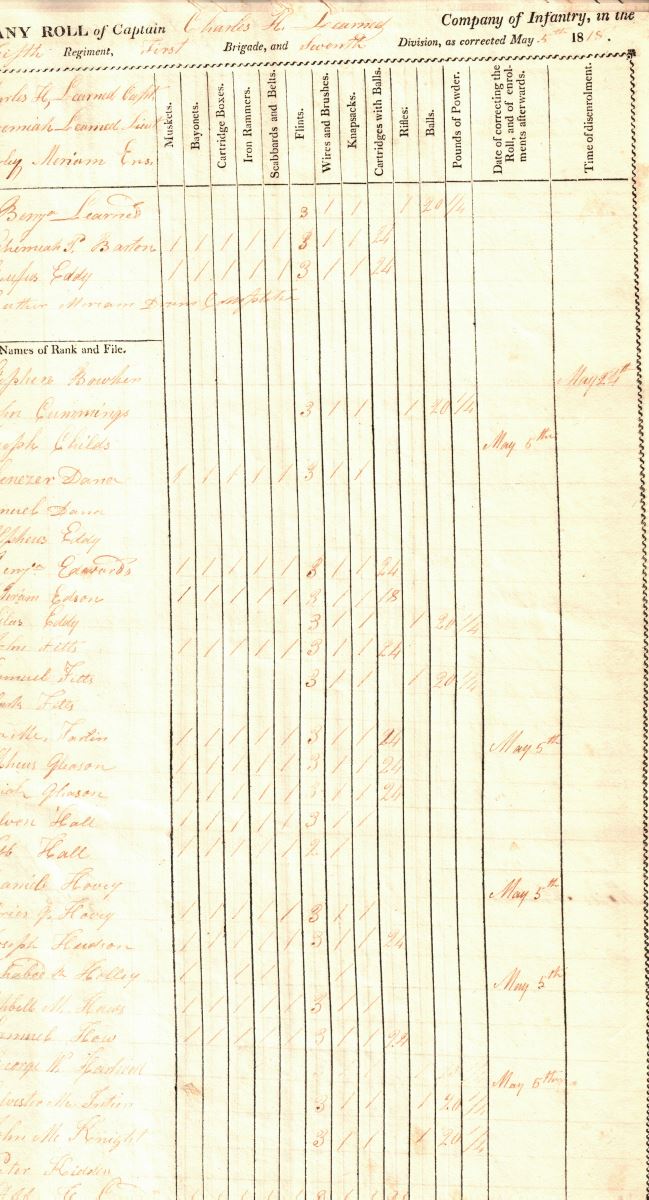 ANY ROLL of Captain Charles H. Learned Company of Infantry, in the
Fifth Regiment, First Brigade, and Seventh Division, as corrected May 5th 1818.
arles H, Learned Capt
emiah Learned Lieut
Miriam Ens.
Muskets.
Bayonets.
Cartridge Boxes.
Iron Rammers.
Scabbards and Belts.
Flints.
Wires and Brushes.
Knapsacks.
Cartridges with Balls.
Rifles.
Balls.
Pounds of Powder.
Date of correcting the Roll, and of enrolments afterwards.
Time of disenrolment.
Benja Learned 3 1 1 1 20 1/4
hemiah P. Barton 1 1 1 1 1 3 1 1 24
ufus Eddy 1 1 1 1 1 3 1 1 24
uther Miriam Drum
Names of Rank and File.
ephen Bowhen May 24th
hn Cummings 3 1 1 1 20 1/4
oseph Childs May 5th
enezer Dana 1 1 1 1 1 3 1 1
muel Dana
lpheus Eddy
enja Edwards 1 1 1 1 1 3 1 1 24
hiram Edson 1 1 1 1 1 3 1 1 18
las Eddy 3 1 1 1 20 1/4
ohn Fitts 1 1 1 1 1 3 1 1 24
muel Fitts 3 1 1 1 20 1/4
ark Fitts
1 1 1 1 1 3 1 1 24 May 5th
pheus Gleason 1 1 1 1 1 3 1 1 24
iah Gleason 1 1 1 1 1 3 1 1 24
lven Hall 1 1 1 1 1 3 1 1
Hall 1 1 1 1 1 2 1
aniel Hovey May 5th
J. Hovey 1 1 1 1 1 3 1 1
oseph Hudson 1 1 1 1 1 3 1 1 24
Holley 1 1 1 1 May 5th
M. Haws 1 1 1 1 1 3 1 1
amuel How 1 1 1 1 1 3 1 1 22
eorge W. May 5th
lvester Mc 3 1 1 1 20 1/4
ohn Mc Knight 3 1 1 1 20 1/4
eter